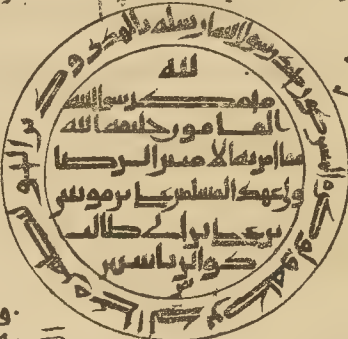 لله
محمد رسول الله
المامون خليفة الله
مما امر به الامير الرضا
ولى عهد المسلمين على بن موسى
بن على بن ابى طالب
ذو الرياستين
محمد رسول الله ارسله بالهدى ودين الحق ليظهره على الدين كله ولو كره المشركون